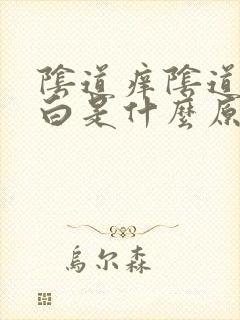 陰道痒陰道
白是什麼原
烏尔森